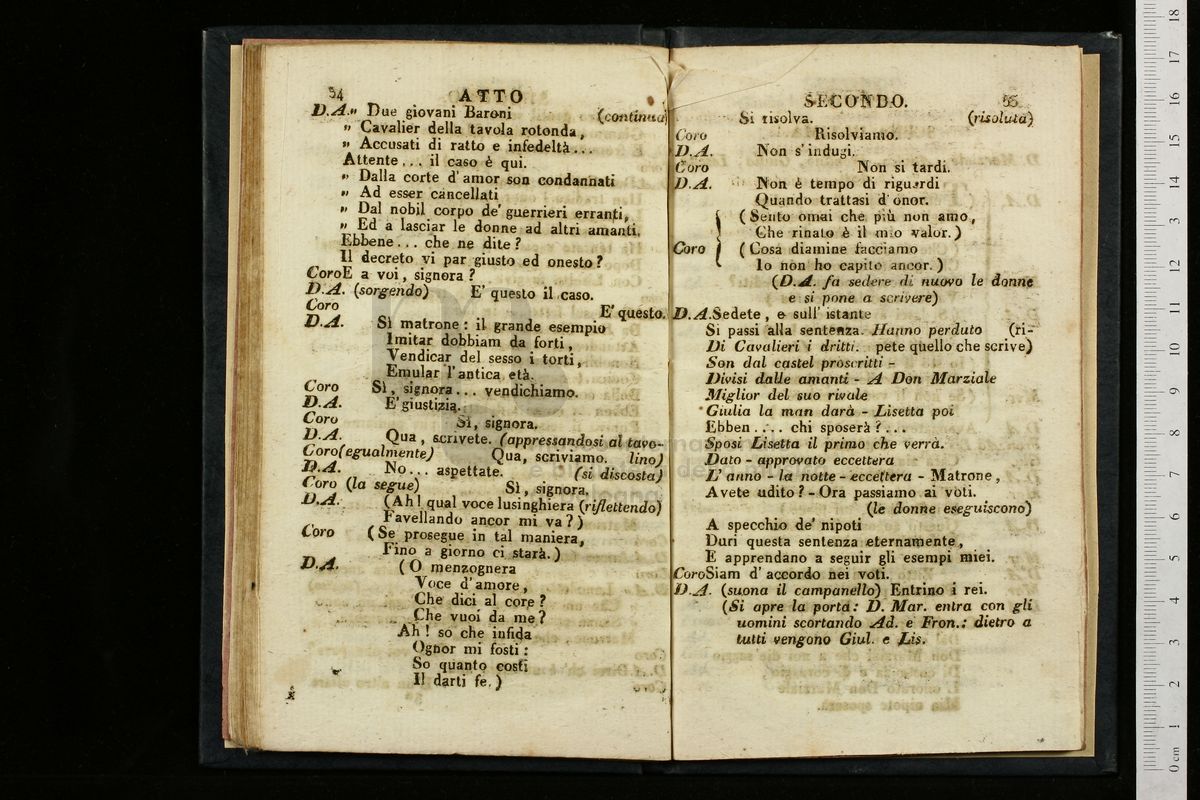 54 ATTO
D.A.„ Due giovani Baroni (continua)
„ Cavalier della tavola rotonda,
„ Accusati di ratto e infedeltà...
Attente... il caso è qui.
„ Dalla corte d'amor son condannati
„ Ad esser cancellati
„ Dal nobil corpo de' guerrieri erranti,
„ Ed a lasciar le donne ad altri amanti.
Ebbene... che ne dite?
Il decreto vi par giusto ed onesto?
CoroE a voi, signora?
D.A. (sorgendo) E' questo il caso.
Coro E' questo.
D.A. Sì matrone: il grande esempio
Imitar dobbiam da forti,
Vendicar del sesso i torti,
Emular l'antica età.
Coro Sì, signora... vendichiamo.
D.A. E' giustizia.
Coro Sì, signora.
D.A. Qua, scrivete. (appressandosi al tavo-
Coro(egualmente) Qua, scriviamo. lino)
D.A. No... aspettate. (si discosta)
Coro (la segue) Sì, signora.
D.A. (Ah! qual voce lusinghiera (riflettendo)
Favellando ancor mi va?)
Coro (Se prosegue in tal maniera,
Fino a giorno ci starà.)
D.A. (O menzognera
Voce d'amore,
Che dici al core?
Che vuoi da me?
Ah! so che infida
Ognor mi fosti:
So quanto costi
Il darti fe.)
SECONDO. 55
Si risolva. (risoluta)
Coro Risolviamo.
D.A. Non s'indugi.
Coro Non si tardi.
D.A. Non è tempo di riguardi
Quando trattasi d'onor.
(Sento omai che più non amo,
Che rinato è il mio valor.)
Coro (Cosa diamine facciamo
Io non ho capito ancor.)
(D.A. fa sedere di nuovo le donne
e si pone a scrivere)
D.A.Sedete, e sull'istante
Si passi alla sentenza. Hanno perduto (ri-
Di Cavalieri i dritti. pete quello che scrive)
Son dal castel proscritti -
Divisi dalle amanti - A Don Marziale
Miglior del suo rivale
Giulia la man darà - Lisetta poi
Ebben.... chi sposerà?...
Sposi Lisetta il primo che verrà.
Dato - approvato eccettera
L'anno - la notte - eccettera - Matrone,
Avete udito? - Ora passiamo ai voti.
(le donne eseguiscono)
A specchio de' nipoti
Duri questa sentenza eternamente,
E apprendano a seguir gli esempi miei.
CoroSiam d'accordo nei voti.
D.A. (suona il campanello) Entrino i rei.
(Si apre la porta: D. Mar. entra con gli
uomini scortando Ad. e Fron.: dietro a
tutti vengono Giul. e Lis.